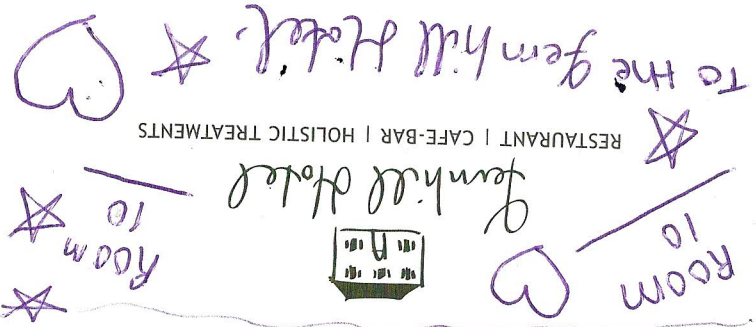 Room
10
Room
10
Fernhill Hotel
RESTAURANT | CAFE-BAR | HOLISTIC TREATMENTS
To the Fernhill Hotel.